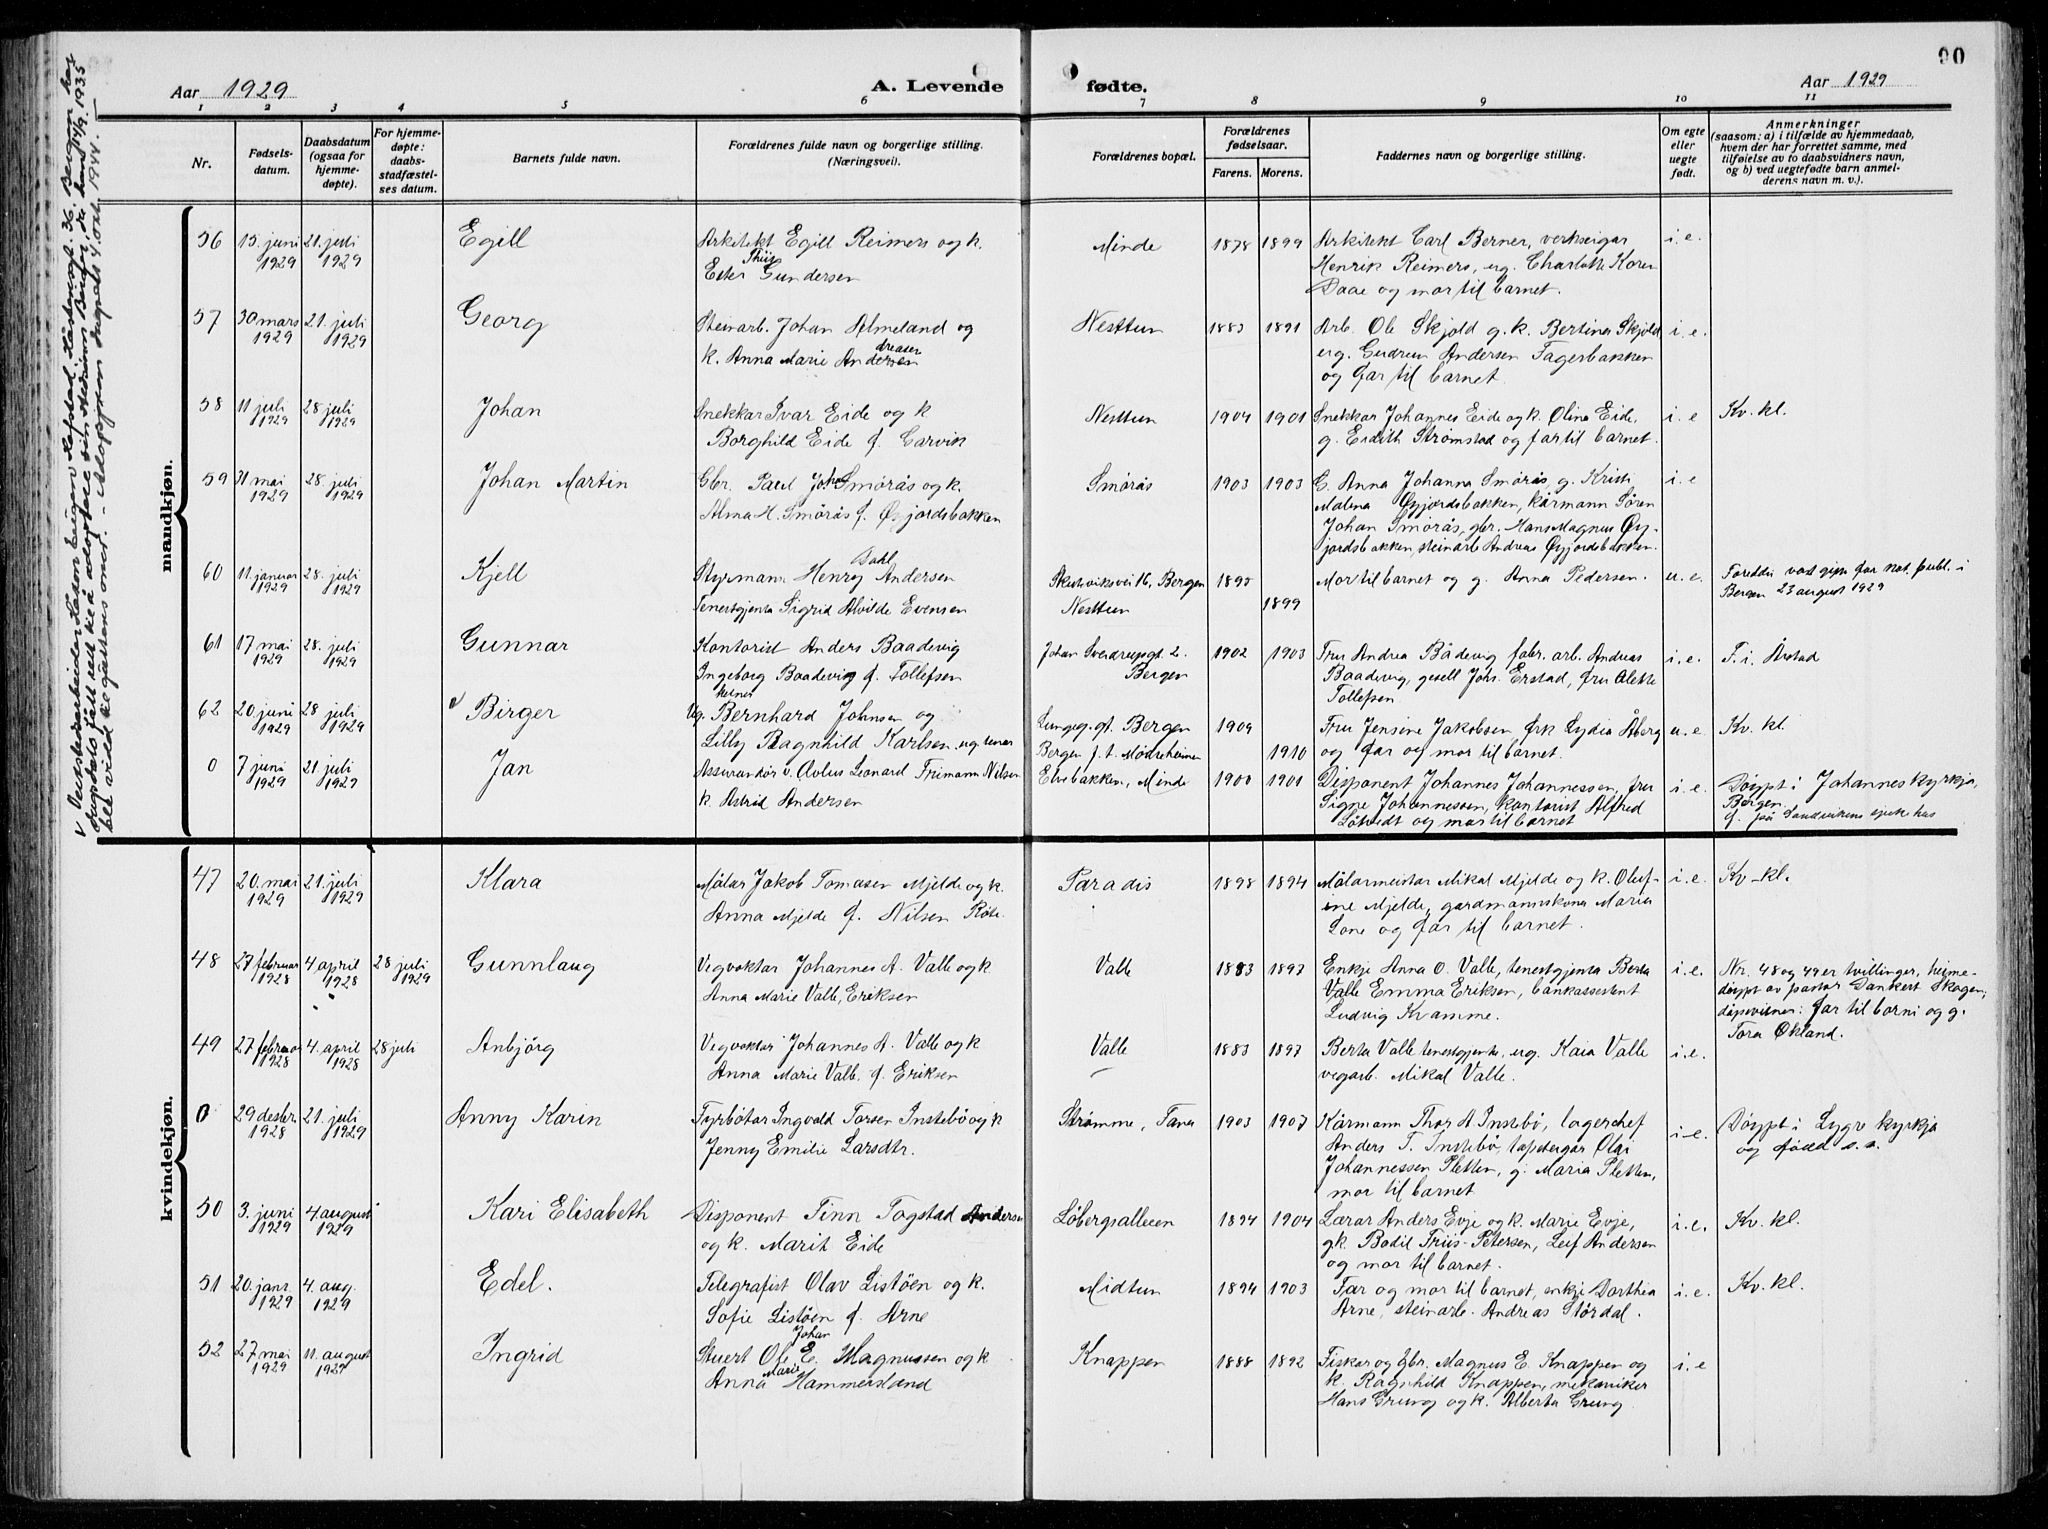 90
Aar 1929
A. Levende
fødte.
Aar 1929
1 2 3 4 5 6 7 8 9 10 11
Nr.
Fødsels-
datum.
Daabsdatum
(ogsaa for
hjemme-
døpte).
For hjemme-
døpte:
daabs-
stadfæstel-
ses datum.
Barnets fulde navn.
Forældrenes fulde navn og borgerlige stilling.
(Næringsvei).
Forældrenes bopæl.
Forældrenes
fødselsaar.
Farens. Morens.
Faddernes navn og borgerlige stilling.
Om egte
eller
uegte
født.
Anmerkninger
(saasom: a) i tilfælde av hjemmedaab,
hvem der har forrettet samme, med
tilføielse av to daabsvidners navn,
og b) ved uegtefødte barn anmel-
derens navn m. v.).
mandkjøn.
56 15. juni 1929 21. juli 1929 Egill
Arkitekt Egill Reimers og k.
Ester Gundersen
Minde 1878 1899
Arkitekt Carl Berner, verkseigar
Henrik Reimers, ug. Charlotte Koren
Daae og mor til barnet.
i. e.
57 30 mars 1929 21. juli 1929 Georg
Steinarb. Johan Almeland og
k. Anna Marie Andersen
dreasen
Nesttun 1883 1891
Arb. Ole Skjold g. k. Bertina Skjold
ug. Gudrun Andersen Fagerbakken
og far til barnet.
i. e.
58 11 juli 1929 28 juli 1929 Johan
Snekkar Ivar Eide og k
Borghild Eide f. Carvik
Nesttun 1904 1901
Snekkar Johannes Eide og k. Oline Eide,
g. Eidith Strømstad og far til barnet.
i. e Kv. kl.
59 31 mai 1929 28. juli 1929 Johan Martin
Gbr. Paul Johan Smørås og k.
Alma H. Smørås f. Øyjordsbakken
Smørås 1903 1903
G. Anna Johanna Smørås, g. Kristi
Malena Øyjordsbakken, kårmann Søren
Johan Smørås, gbr. Hans Magnus Øy-
jordsbakken, steinarb Andreas Øyjordsbakken.
i. e
60 11. januar 1929 28. juli 1929 Kjell
Styrmann Henry Dahl Andersen
Tenestgjenta Sigrid Alvilde Evensen
Skutviksvei 16, Bergen
Nesttun
1899
Mor til barnet og g. Anna Pedersen.
u. e.
Foreldri vart gift far not. publ. i
Bergen 23 august 1929
61 17 mai 1929 28. juli 1929 Gunnar
Kontorist Anders Baadevig
Ingeborg Baadevig f. Tollefsen
Johan Sverdrupsgt 2.
Bergen
1902 1903
Fru Andrea Bådevig fabr. arb. Andreas
Baadevig, gesell Johs. Erstad, fru Alette
Tollefsen
i. e. F. i. Årstad
62 20. juni 1929 28 juli 1929 v Birger
Ug. kelner Bernhard Johnsen og
Lilly Ragnhild Karlsen, ug. tenar
Lungeg. gt. Bergen
Bergen f. t. Mødreheimen
1909 1910
Fru Jensine Jakobsen, frk Lydia Åberg
og far og mor til barnet.
u. e Kv. kl.
0 7 juni 1929 21. juli 1929 Jan
Assurandør v. Aolus Leonard Frimann Nilsen
k. Astrid Andersen
Elvebakken, Minde 1900 1901
Disponent Johannes Johannessen, fru
Signe Johannessen, kontorist Alfred
Løtvedt og mor til barnet
i. e.
Døypt i Johanneskyrkja,
Bergen.
f. på Sandvikens sjukehus
kvindekjøn.
47 20. mai 1929 21. juli 1929 Klara
Målar Jakob Tomasen Mjelde og k.
Anna Mjelde f. Nilsen Røte.
Paradis 1898 1894
Målarmeistar Mikal Mjelde og k. Oluf-
ine Mjelde, gardmannskona Maria
Lone og far til barnet.
i. e. Kv - kl.
48 27 februar 1928 4 april 1928 28 juli 1929 Gunnlaug
Vegvoktar Johannes A. Valle og k
Anna Marie Valle, Eriksen
Valle 1883 1897
Enkje Anna O. Valle, tenestgjenta Berta
Valle Emma Eriksen, bankassestent
Ludvig Kramme.
i. e.
Nr. 48 og 49 er tvillinger, heime-
døypt av pastor Dankert Skagen,
dåpsvitner: far til barni og g.
Tora Økland.
49 27 februar 1928 4. april 1928 28 juli Anbjørg
Vegvoktar Johannes A. Valle og k
Anna Marie Valle f. Eriksen
Valle 1883 1897
Berta Valle tenestgjenta, ug. Kaia Valle
vegarb. Mikal Valle.
i. e.
0 29 desbr. 1928 21. juli 1929 Anny Karin
Fyrbøtar Ingvald Torsen Instebø og k
Jenny Emilie Larsdtr.
Strømme, Fana 1903 1907
Kårmann Thor A Instebø, lagerchef
Anders T. Instebø, tapetsergar Olai
Johannessen Pletten, g. Maria Pletten,
mor til barnet
i. e.
Døypt i Lygv kyrkja
og fødd s. s.
50 3. juni 1929 4. august 1929 Kari Elisabeth
Disponent Finn Fogstad Andersen
og k. Marit Eide
Løbergsalleen 1894 1904
Lærar Anders Evje og k. Marie Evje,
g.k. Bodil Friis-Petersen, Leif Andersen
og mor til barnet.
i. e. Kv. kl.
51 20. janr. 1929 4. aug. 1929 Edel.
Telegrafist Olav Listøen og k.
Sofie Listøen f. Arne
Midtun 1894 1903
Far og mor til barnet, enkje Dorthea
Arne, steinarb. Andreas Størdal.
i. e. Kv. kl.
52 27 mai 1929 11. august 1929 Ingrid
Stuert Ole Johan E. Magnussen og k
Anna Marie Hammersland
Knappen 1888 1892
Fiskar og gbr. Magnus E. Knappen og
k. Ragnhild Knappen, mekaniker
Hans Grung og k. Alberta Grung
i. e